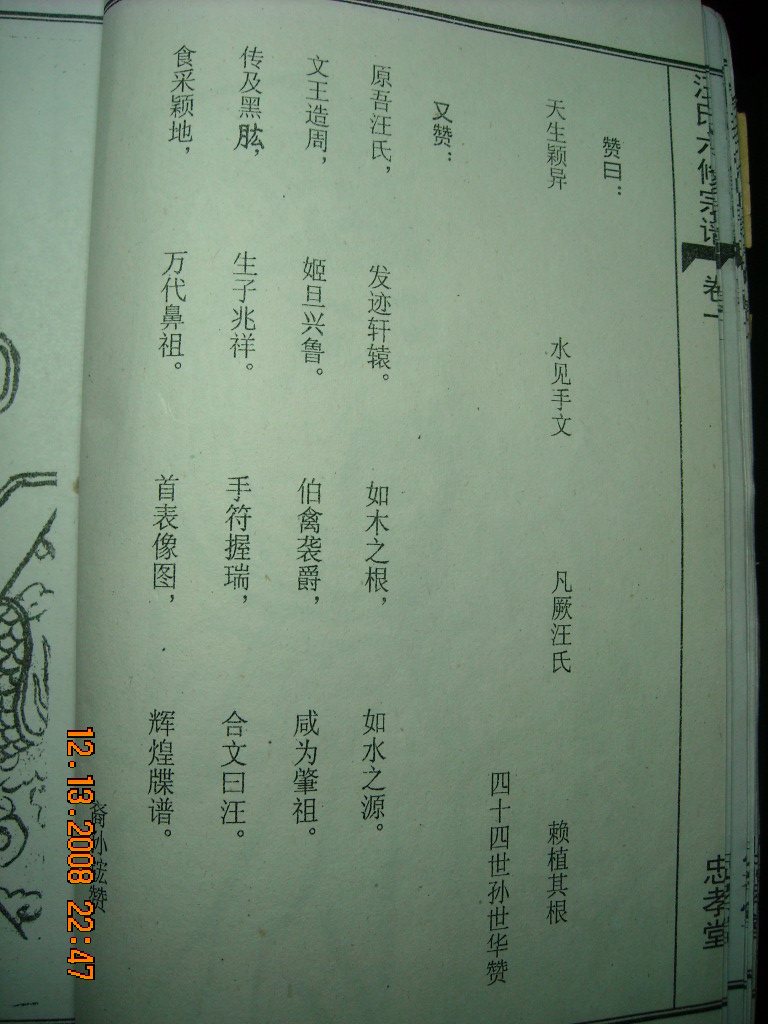 汪氏六修宗谱
卷一
忠孝堂
赞曰：
天生颖异 水见手文 凡厥汪氏 赖植其根
四十四世孙世华赞
又赞：
原吾汪氏， 发迹轩辕。 如木之根， 如水之源。
文王造周， 姬旦兴鲁。 伯禽袭爵， 咸为肇祖。
传及黑肱， 生子兆祥。 手符握瑞， 合文曰汪。
食采颖地， 万代鼻祖。 首表像图， 辉煌牒谱。
裔孙 赞
12.13.2008 22:47